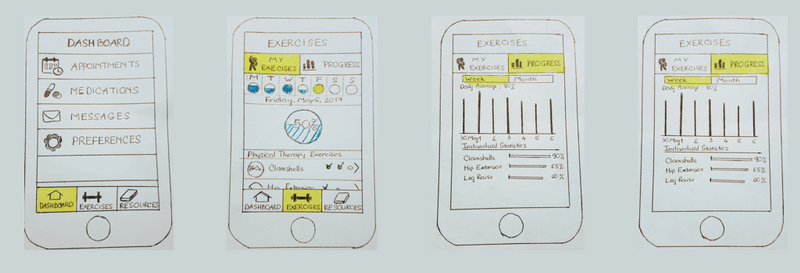 DASHBOARD
APPOINTMENTS
MEDICATIONS
MESSAGES
PREFERENCES
DASHBOARD EXERCISES RESOURCES
EXERCISES
MY EXERCISES PROGRESS
M T W T F S S
Friday, May 6, 2017
50%
Physical Therapy Exercises
Clamshells
Hip Extension
DASHBOARD EXERCISES RESOURCES
EXERCISES
MY EXERCISES PROGRESS
Week Month
Daily Average : 80%
30 May 1 2 3 4 5 6
Individual Statistics
Clamshells 90%
Hip Extension 85%
Leg Raise 60%
EXERCISES
MY EXERCISES PROGRESS
Week Month
Daily Average : 80%
30 May 1 2 3 4 5 6
Individual Statistics
Clamshells 90%
Hip Extension 85%
Leg Raise 60%